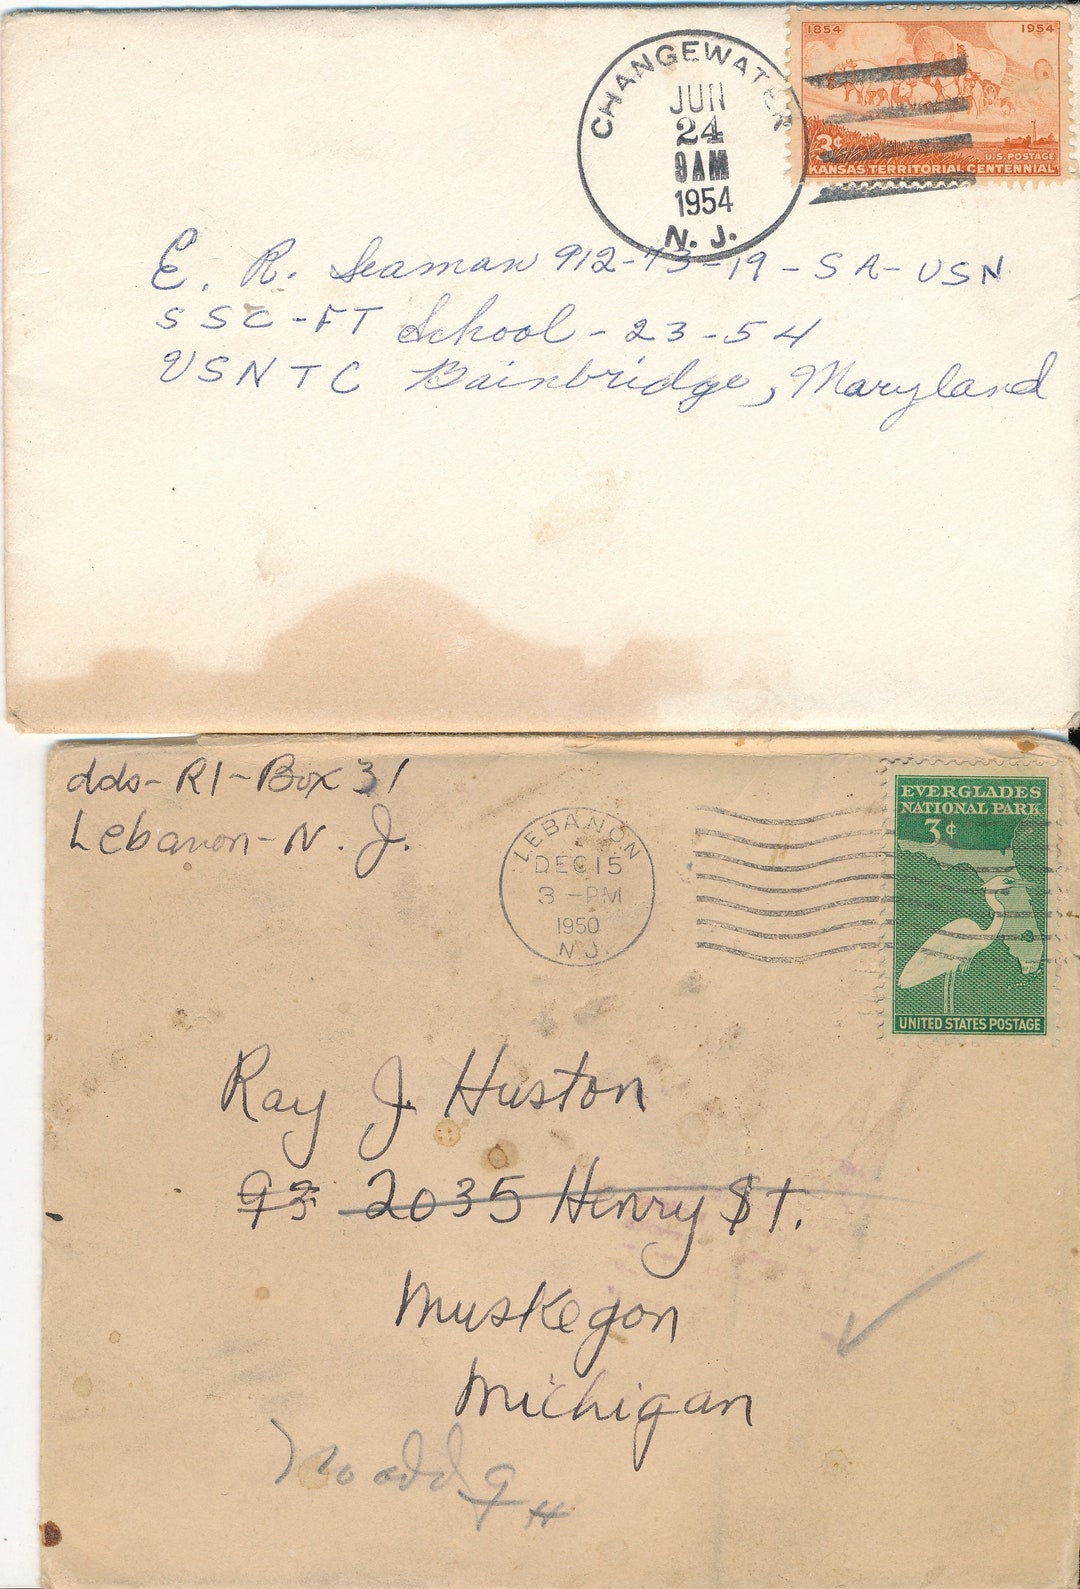 CHANGEWATER
JUN
24
9 AM
1954
N. J.
1854 1954
3¢
U.S. POSTAGE
KANSAS TERRITORIAL CENTENNIAL
E. R. Seaman 912-73-19-SA-USN
SSC-FT School-23-54
USNTC Bainbridge, Maryland
dds-R1-Box 31
Lebanon-N. J.
LEBANON
DEC 15
3 -PM
1950
N.J.
EVERGLADES
NATIONAL PARK
3¢
UNITED STATES POSTAGE
Ray J. Huston
93 2035 Henry St.
Muskegon
Michigan
No add